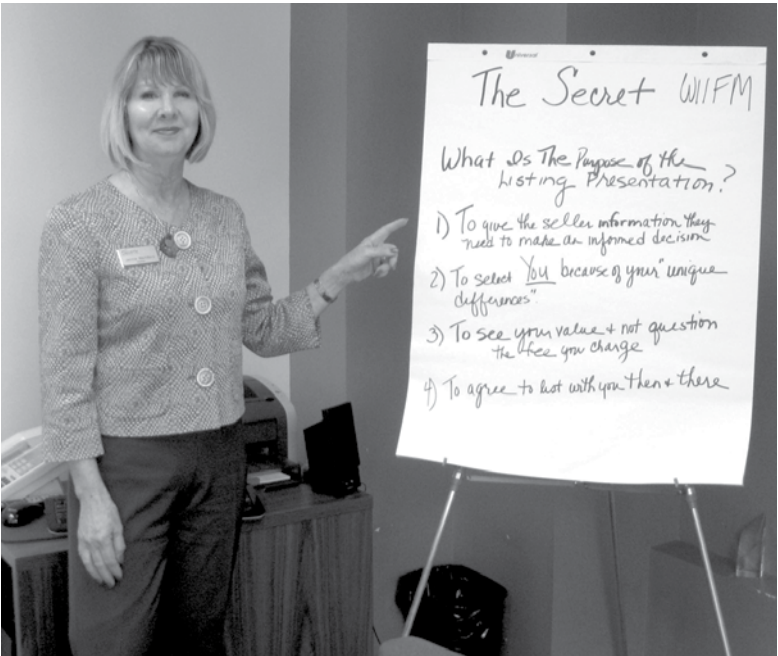 The Secret WIIFM
What Is The Purpose of the
Listing Presentation?
1) To give the seller information they
need to make an informed decision
2) To select You because of your "unique
differences".
3) To see your value + not question
the fee you charge
4) To agree to list with you then + there